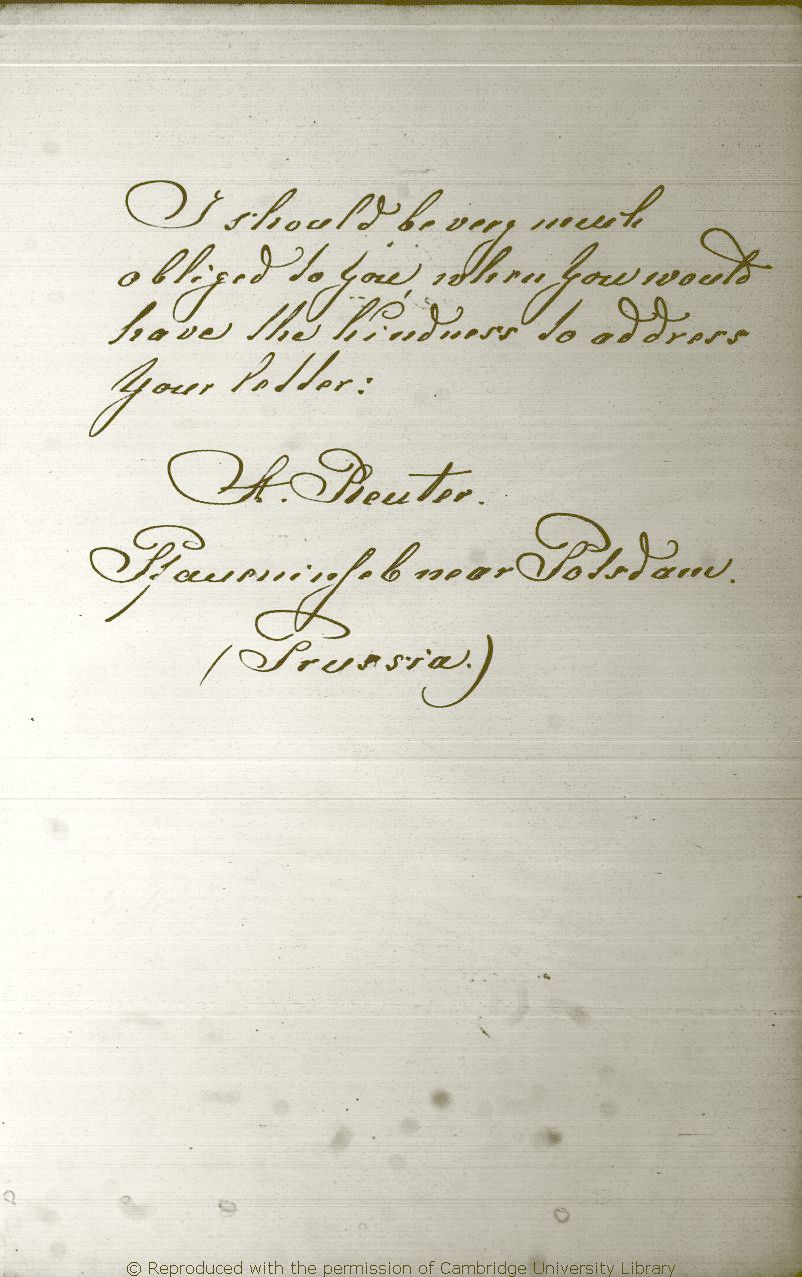 I should be very much
obliged to you, when you would
have the kindness to address
Your letter:
A. Reuter.
Pfaueninsel near Potsdam.
(Prussia.)
© Reproduced with the permission of Cambridge University Library